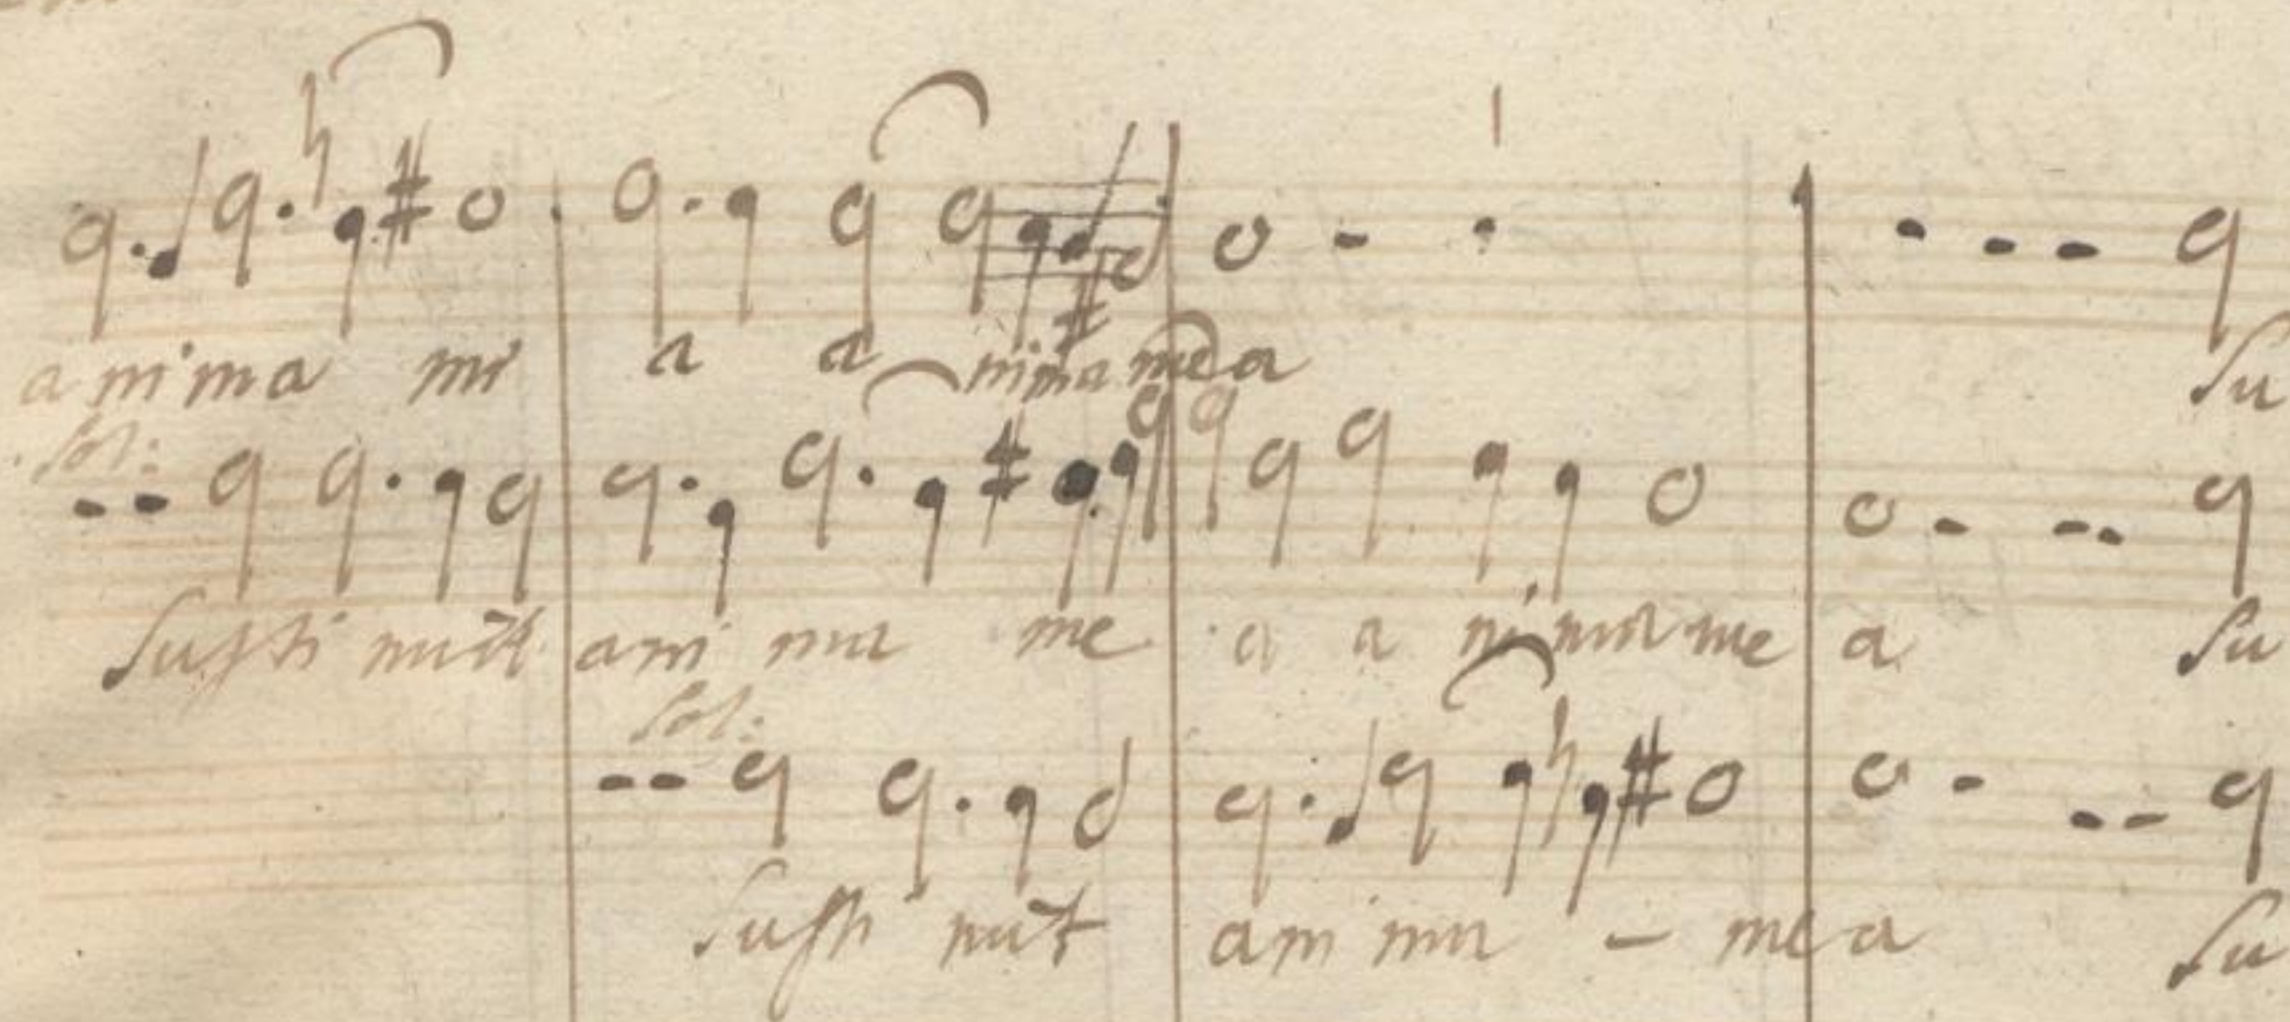 anima me a a nima mea Su
Sol:
Susti nuit ani ma me a a nima me a Su
Sol:
Susti nuit ani ma - me a Su